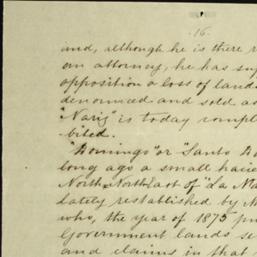 16.
and, although he is there r
an attorney, he has su
opposition a loss of land
denounced and sold as
"Nariz" is today comple
bited.
"Domingo" or "Santo
long ago a small
North-Northeast of "La
lately restablished by
who, the year of 1875
Government lands se
and claims in that